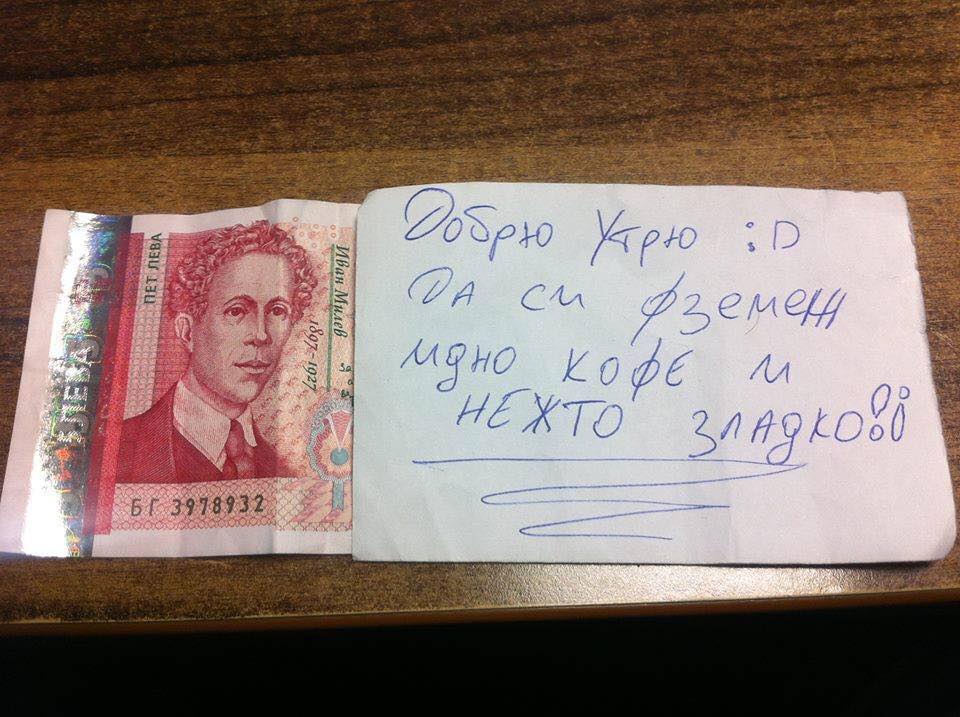 ПЕТ ЛЕВА
ЛЕВА
Иван Милев
1897-1927
БГ 3978932
Добрю Утрю :D
Да си фземеж
идно кофе и
НЕЖТО зладко!!